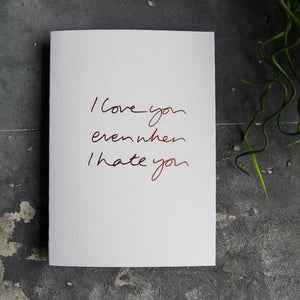 I love you
even when
I hate you